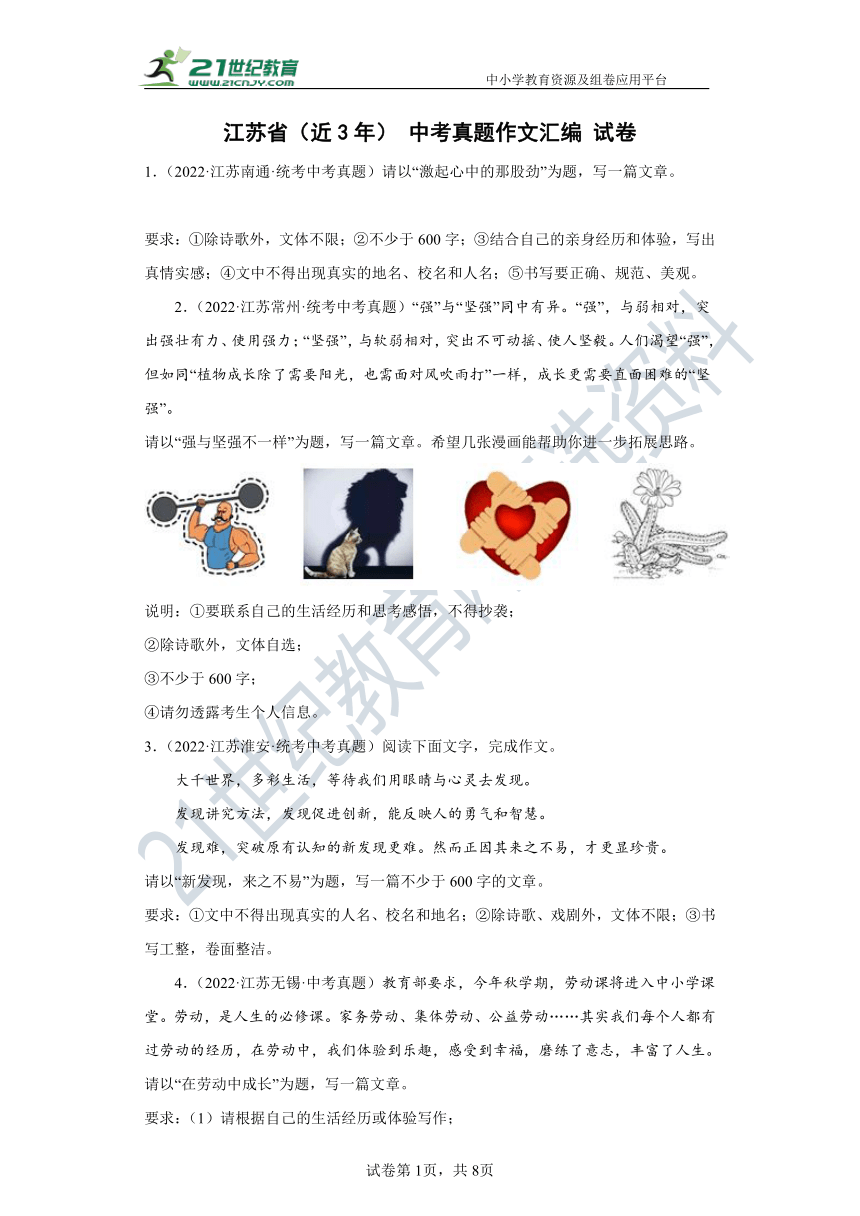 21世纪教育
WWW.21CNJY.COM
中小学教育资源及组卷应用平台
江苏省（近3年） 中考真题作文汇编 试卷
1.（2022·江苏南通·统考中考真题）请以“激起心中的那股劲”为题，写一篇文章。
要求：①除诗歌外，文体不限；②不少于600字；③结合自己的亲身经历和体验，写出
真情实感；④文中不得出现真实的地名、校名和人名；⑤书写要正确、规范、美观。
2.（2022·江苏常州·统考中考真题）“强”与“坚强”同中有异。“强”，与弱相对，突
出强壮有力、使用强力；“坚强”，与软弱相对，突出不可动摇、使人坚毅。人们渴望“强”，
但如同“植物成长除了需要阳光，也需面对风吹雨打”一样，成长更需要直面困难的“坚
强”。
请以“强与坚强不一样”为题，写一篇文章。希望几张漫画能帮助你进一步拓展思路。
说明：①要联系自己的生活经历和思考感悟，不得抄袭；
②除诗歌外，文体自选；
③不少于600字；
④请勿透露考生个人信息。
3.（2022·江苏淮安·统考中考真题）阅读下面文字，完成作文。
大千世界，多彩生活，等待我们用眼睛与心灵去发现。
发现讲究方法，发现促进创新，能反映人的勇气和智慧。
发现难，突破原有认知的新发现更难。然而正因其来之不易，才更显珍贵。
请以“新发现，来之不易”为题，写一篇不少于600字的文章。
要求：①文中不得出现真实的人名、校名和地名；②除诗歌、戏剧外，文体不限；③书
写工整，卷面整洁。
4.（2022·江苏无锡·中考真题）教育部要求，今年秋学期，劳动课将进入中小学课
堂。劳动，是人生的必修课。家务劳动、集体劳动、公益劳动……其实我们每个人都有
过劳动的经历，在劳动中，我们体验到乐趣，感受到幸福，磨练了意志，丰富了人生。
请以“在劳动中成长”为题，写一篇文章。
要求：（1）请根据自己的生活经历或体验写作；
试卷第1页，共8页